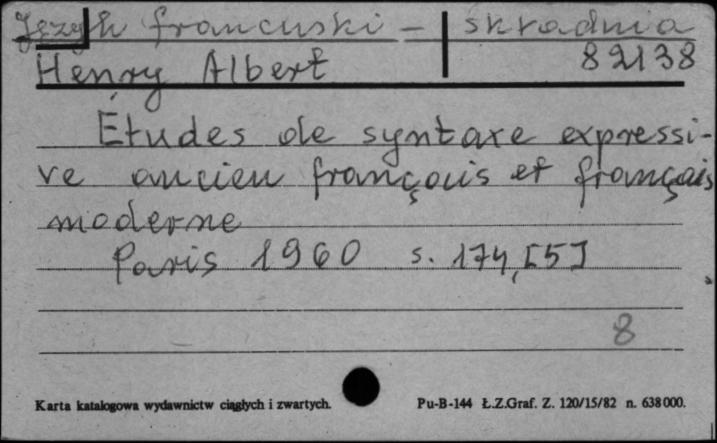 Język francuski - składnia
Henry Albert 82138
Etudes de syntaxe expressi-
ve ancien français et français
moderne
Paris 1960 s. 174, [5]
8
Karta katalogowa wydawnictw ciągłych i zwartych. Pu-B-144 Ł.Z.Graf. Z. 120/15/82 n. 638000.